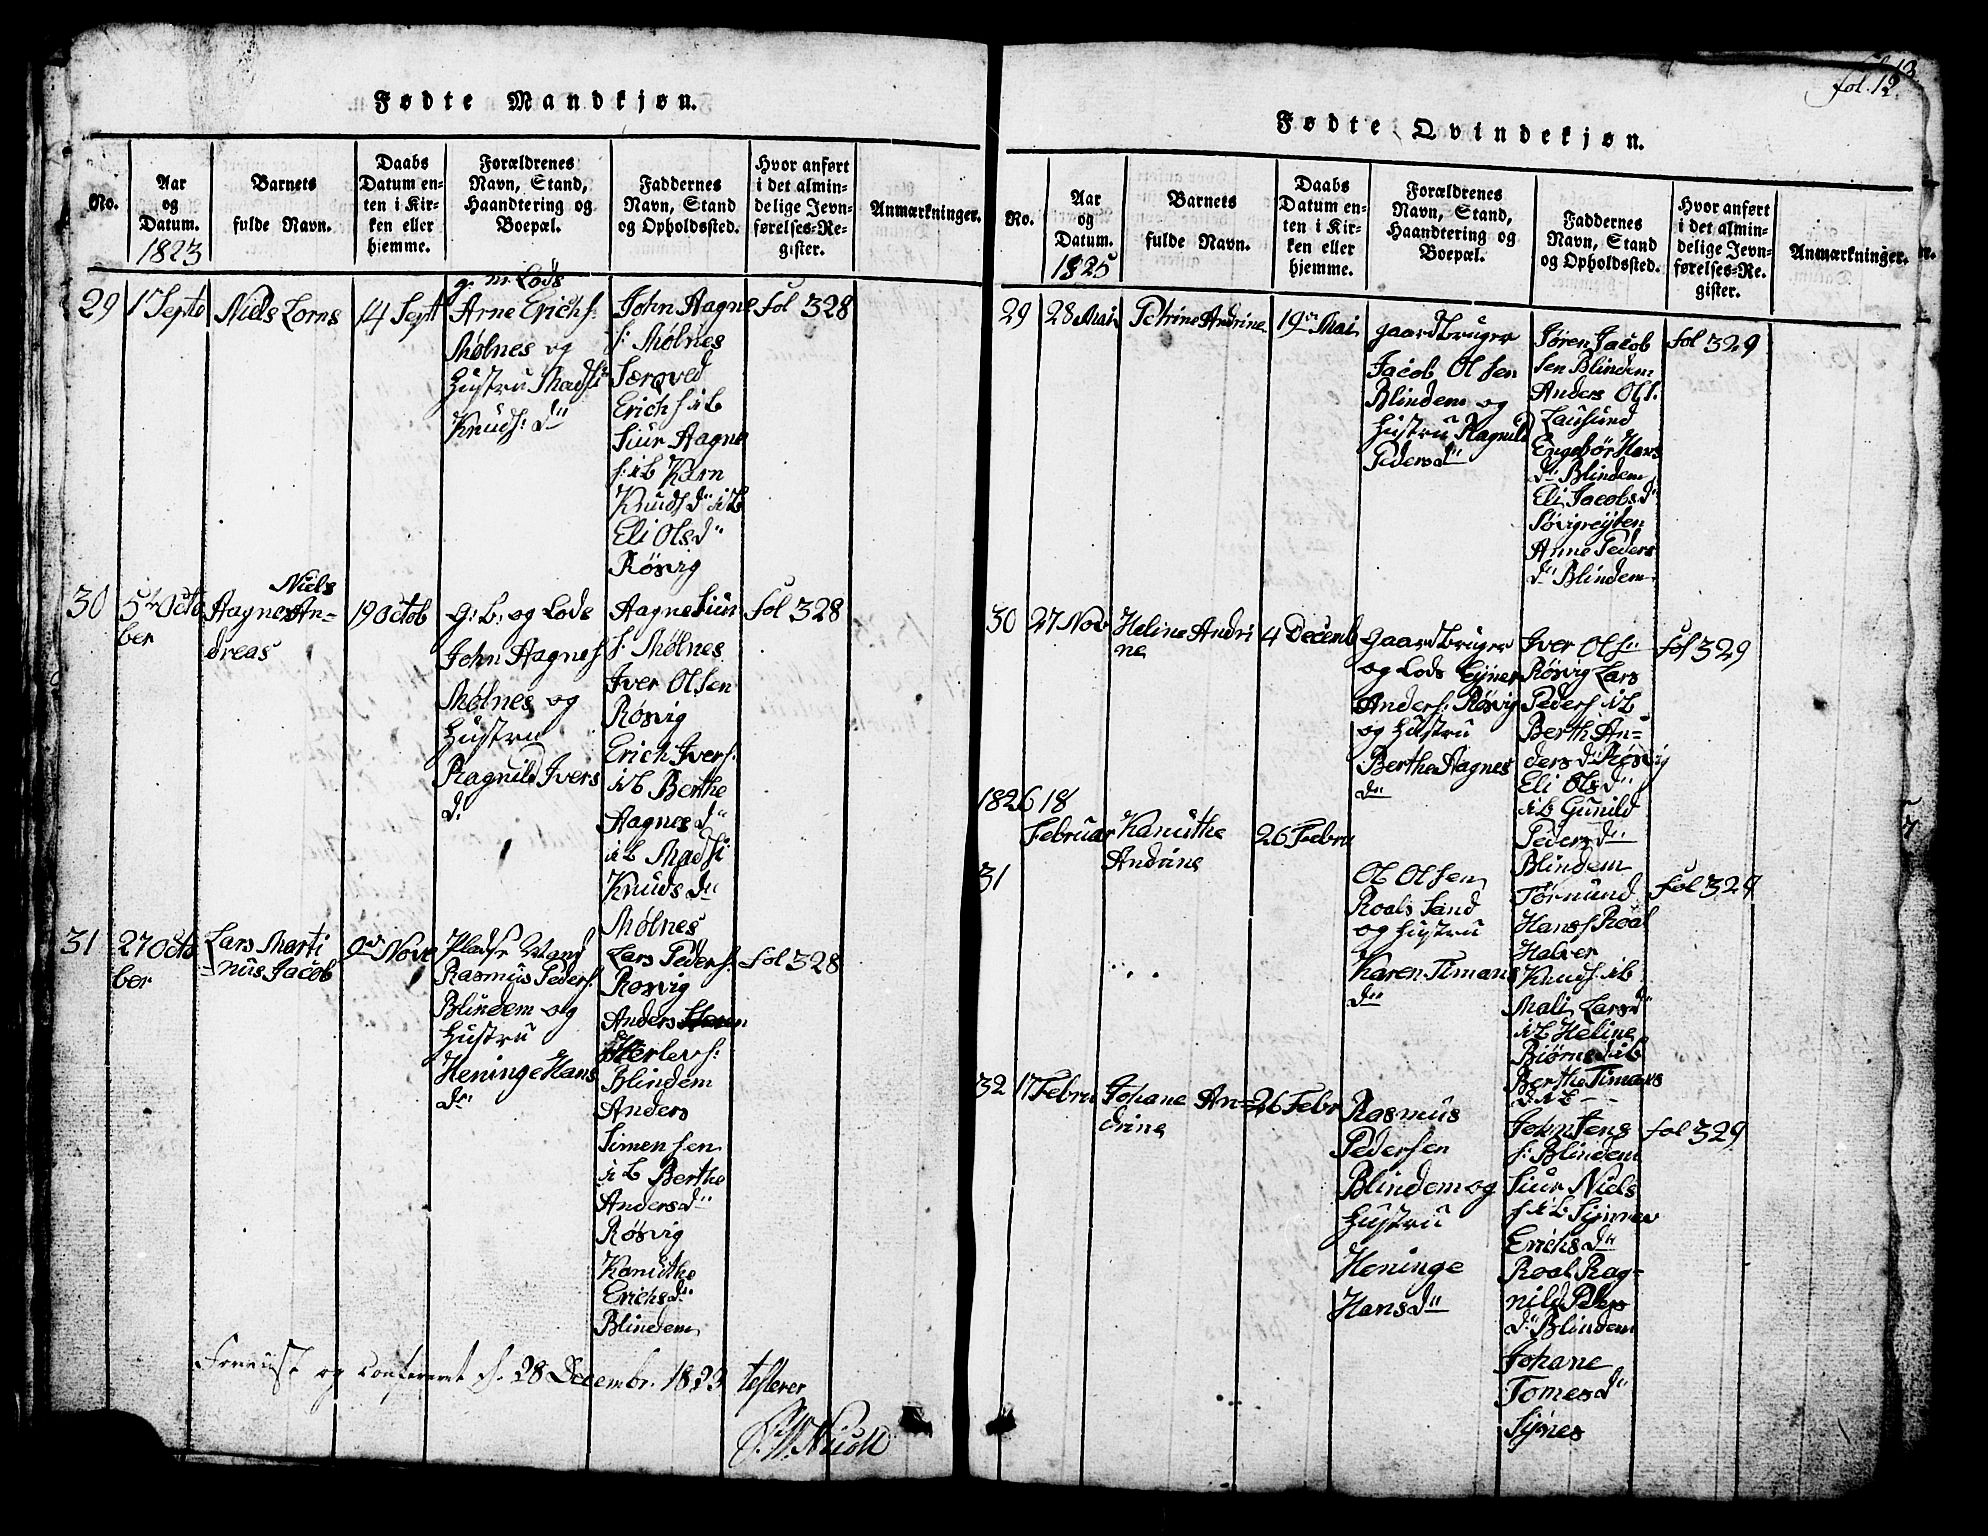 Fødte Mandkjøn.
No.
Aar
og
Datum.
1823
Barnets
fulde Navn.
Daabs
Datum en-
ten i Kir-
ken eller
hjemme.
Forældrenes
Navn, Stand,
Haandtering og
Boepæl.
Faddernes
Navn, Stand
og Opholdssted.
Hvor anført
i det almin-
delige Jevn-
førelses-Re-
gister.
Anmærkninger.
29
1 Septe
Niels Lorns
14 Sept
g. m. Lods
Arne Erichs:
Mølnes og
Hustru Madsi
Knuds: dr
John Aagne
s: Mølnes
Erichs i b
Siur Aagne
s: i b Karn
Knuds dr i b
Eli Ols dr
Røsvig
fol 328
30
5te Octo
ber
Niels
Aagnes An-
dreas
19 Octob
G: b: og Lods
John Aagnes
Mølnes og
Hustru
Ragnild Ivers
d:
Aagne Siur
s: Mølnes
Iver Olsen
Røsvig
Erich Ivers:
i b Berthe
Aagnes dr
i b Madsi
Knuds dr
Mølnes
fol 328
31
27 Octo
ber
Lars Marti
nus Jacob
9de Nove
Pladsr Mand
Rasmus Peders:
Blindem og
Hustru
Heninge Hans
dr
Lars Peders:
Røsvig
Anders
Herlevs:
Blindem
Anders
Simensen
i b Berthe
Anders dr
Røsvig
Kanuthe
Erichs dr
Blindem
fol 328
og Confereret d. 28 Decembr. 1823 testerer
Fødte Qvindekjøn.
fol. 12
No.
Aar
og
Datum.
1825
Barnets
fulde Navn.
Daabs
Datum en-
ten i Kir-
ken eller
hjemme.
Forældrenes
Navn, Stand,
Haandtering og
Boepæl.
Faddernes
Navn, Stand
og Opholdssted.
Hvor anført
i det almin-
delige Jevn-
førelses-Re-
gister.
Anmærkninger.
29
28 Mai
Petrine Andrine
19de Mai
gaardbruger
Jacob Olsen
Blindem og
Hustru Ragnild
Peders dr
Søren Jacob
sen Blindem
Anders Ols.
Lausund
Engebør Hans
dr Blindem
Eli Jacobs dr
Søvigreyten
Anne Peders
dr Blindem
fol 329
30
27 Nov
Heline Andri
ne
4 Decemb
Gaardbruger
og Lods Ejner
Anders: Røsvig
og Hustru
Berthe Aagnes
dr
Iver Ols
Røsvig Lars
Peders i b
Berth An-
ders dr Røsvig
Eli Ols dr
i b Gunild
Peders dr
Blindem
fol 329
1826 18
Februar
31
Kanuthe
Andrine
26 Febru
Ol Olsen
Roals Sand
og Hustru
Karen Timans
dr
Tormund
Hans Roal
Halver
Knuds i b
Mali Lars dr
i b Heline
Biørns d i b
Berthe Timans
d i b
fol 329
32
17 Febru
Johane An-
drine
26 Febr
Rasmus
Pedersen
Blindem og
Hustru
Heninge
Hans dr
John Jens
s: Blindem
Siur Niels
s i b Synnev
Erichs dr
Roal Rag-
nild Peders
dr Blindem
Johane
Tomes dr
Synes
fol 329